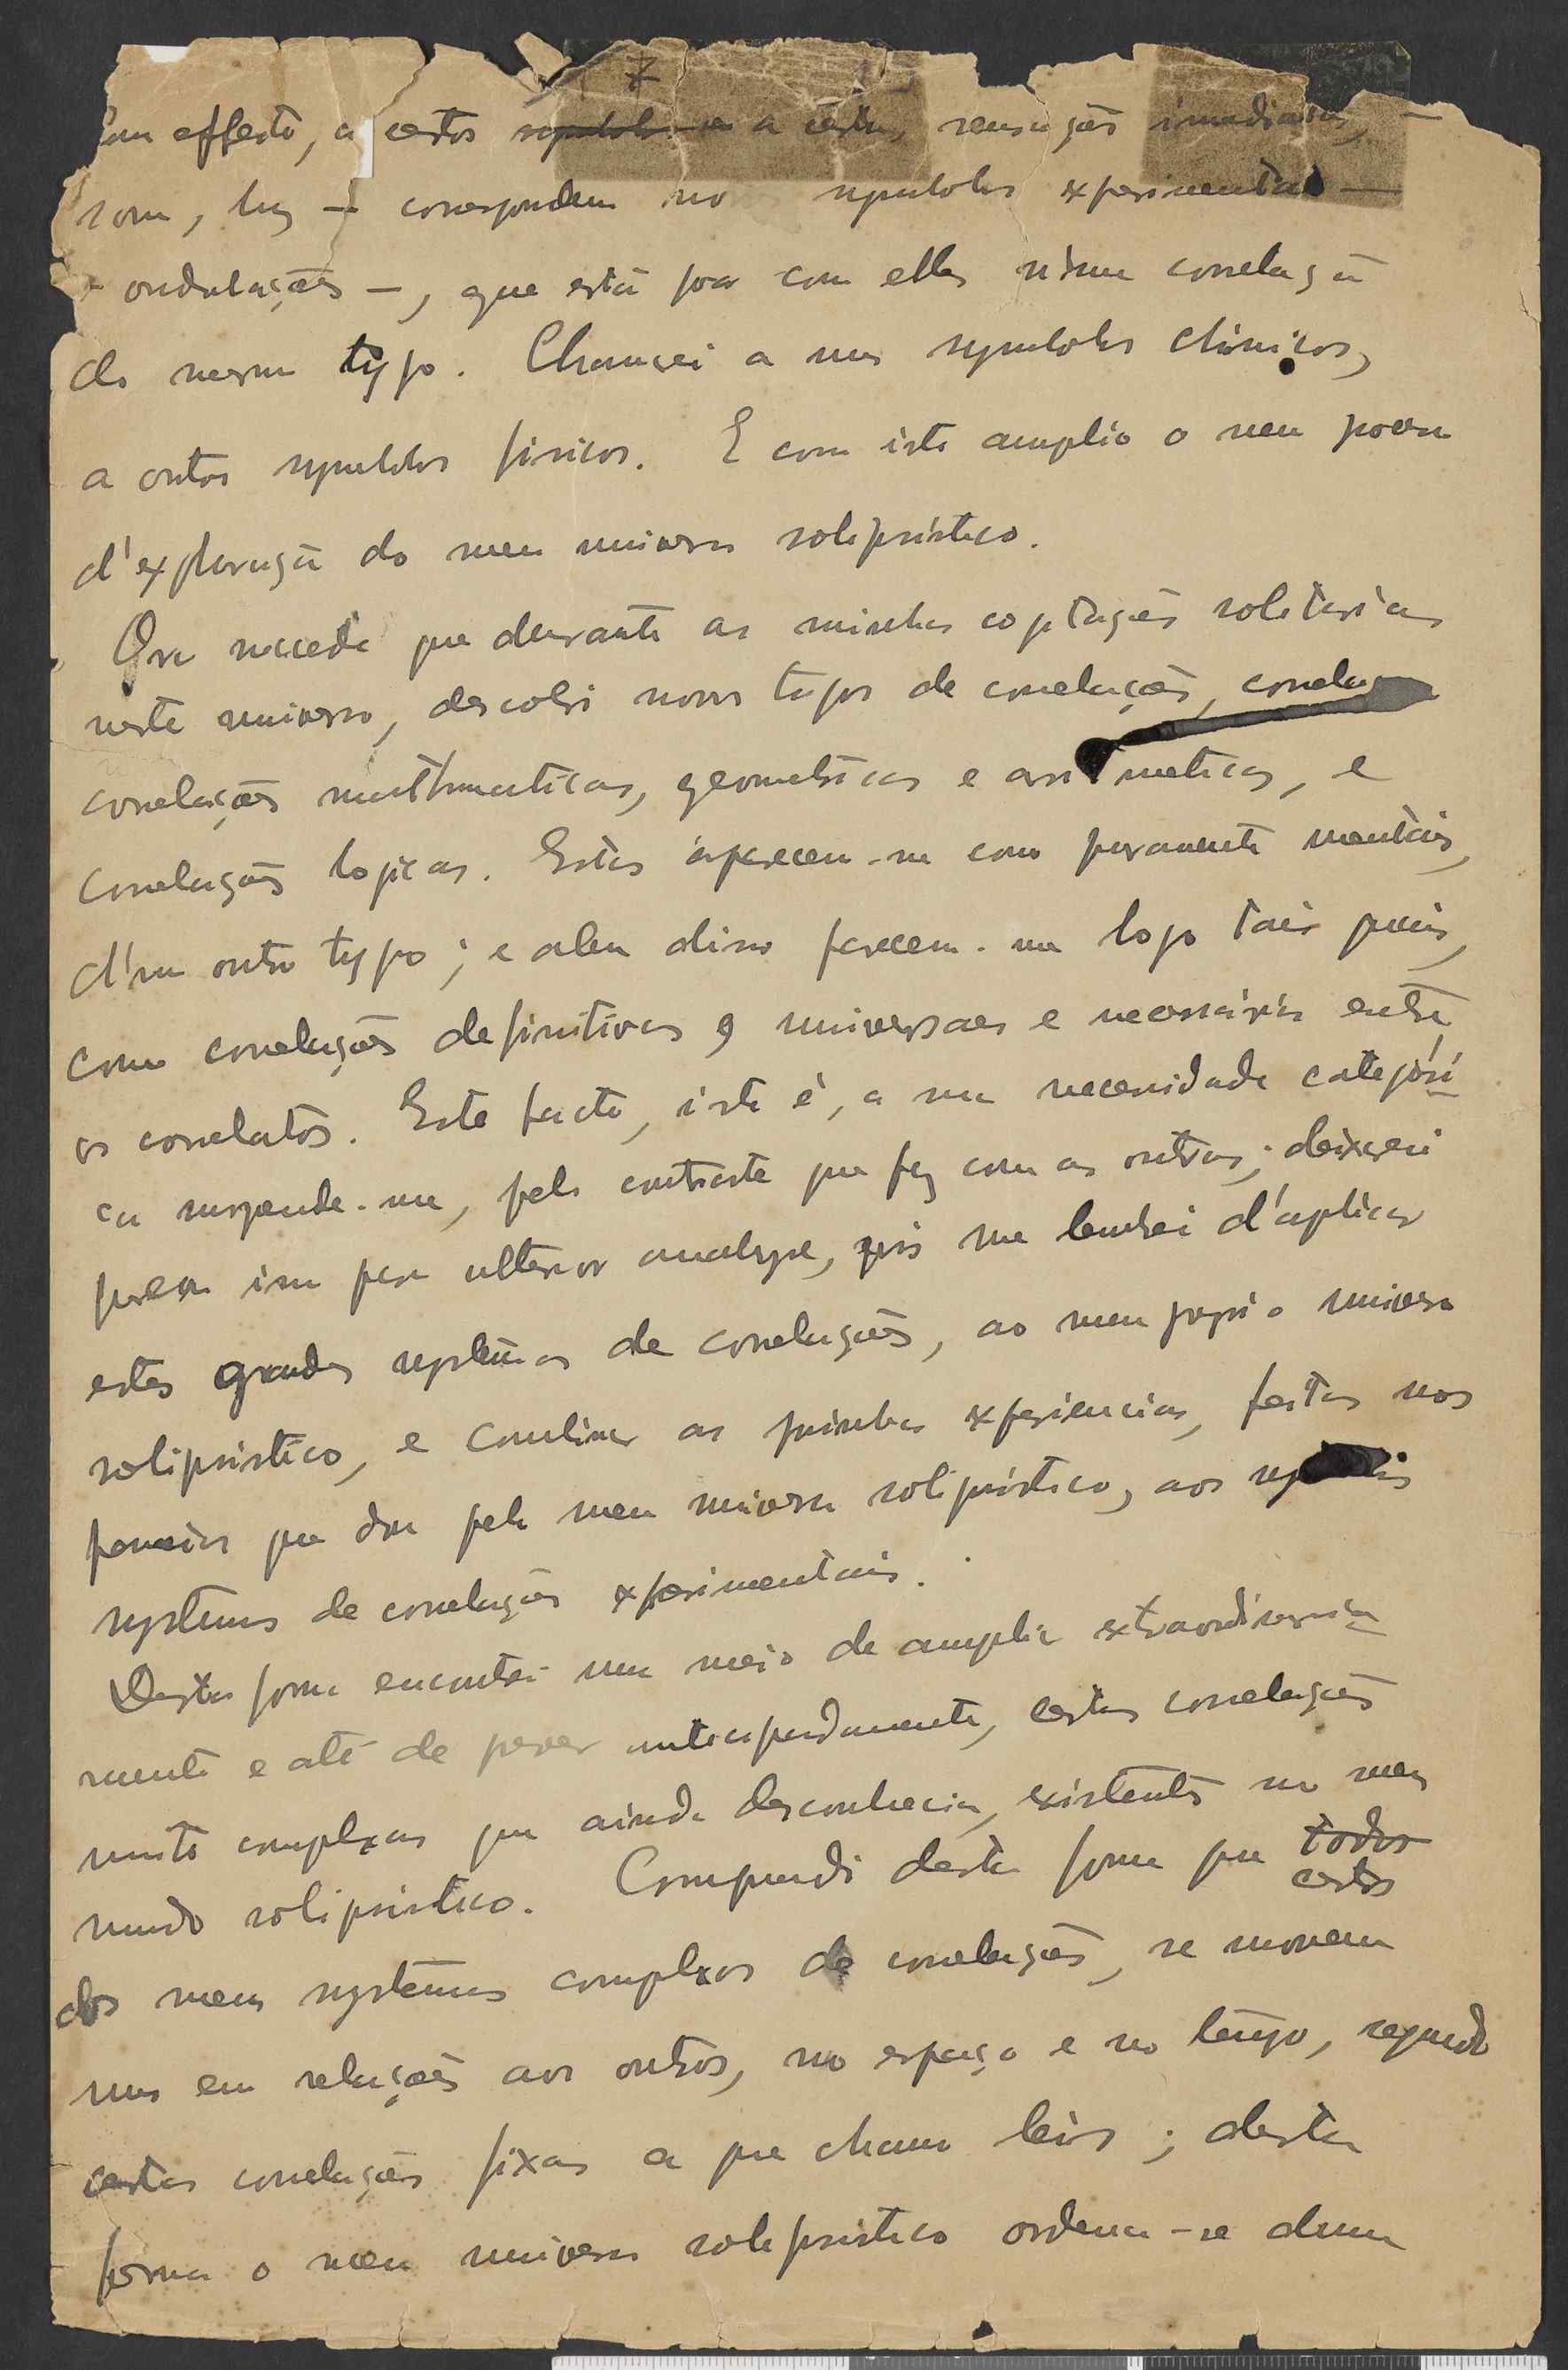 7
Com effeito, a certos symbolos a certas sensações imediatas, —
som, luz — correspondem no symbolos experimentaes —
ondulações —, que estã para com elles n'uma correlaçã
do mesmo typo. Chamei a uns symbolos chimicos,
a outros symbolos fisicos. E com isto amplio o meu poder
d'exploraçã do meu universo solipsistico.
Ora succede que durante as minhas cogitações solitarias
neste universo, descobri novos typos de correlações, correlaç
correlações mathematicas, geometricas e aritmeticas, e
correlações logicas. Estas aparecem-me como puramente mentais,
d'um outro typo; e alem disso parecem-me logo tais quais,
como correlações definitivas, universaes e necessárias entre
os correlatos. Este facto, isto é, a sua necessidade categóri-
ca surpende-me, pelo contraste que fez com as outras; deixarei
porem isso para ulterior analyse, pois me lembrei d'aplicar
estes grandes systemas de correlações, ao meu proprio universo
solipsistico, e combinar as minhas experiencias, feitas nos
passeios que dou pelo meu universo solipsistico, aos
systemas de correlações experimentais.
Desta forma encontrei um meio de ampliar extraordinaria-
mente e até de prever antecipadamente, certas correlações
muito complexas que ainda desconhecia, existentes no meu
mundo solipsistico. Comprendi desta forma que todos
certos
dos meus systemas complexos de correlações, se movem
uns em relações aos outros, no espaço e no tempo, segundo
certas correlações fixas a que chamo leis; desta
forma o meu universo solipsistico ordena-se duma